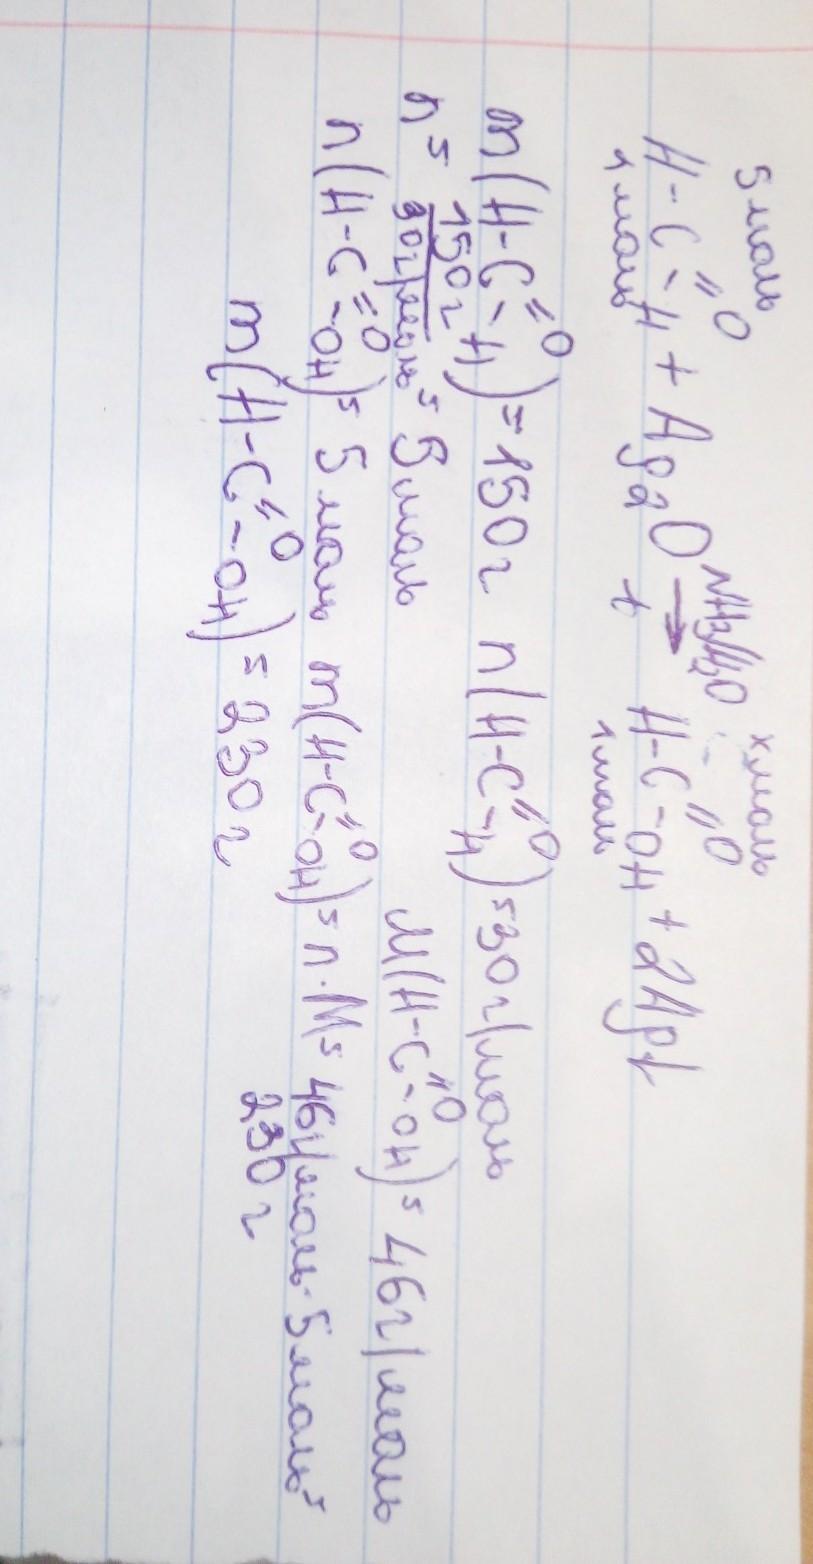 5 моль х моль
H-C=O-H + Ag2O NH3/H2O → H-C=O-OH + 2Ag↓
1 моль + 1 моль
m(H-C=O-H)=150г n(H-C=O-H)=30г/моль
n= 150г/30г/моль = 5 моль M(H-C=O-OH)= 46г/моль
n(H-C=O-OH)= 5 моль m(H-C=O-OH)= n·M= 46г/моль·5моль=
230г
m(H-C=O-OH)= 230г